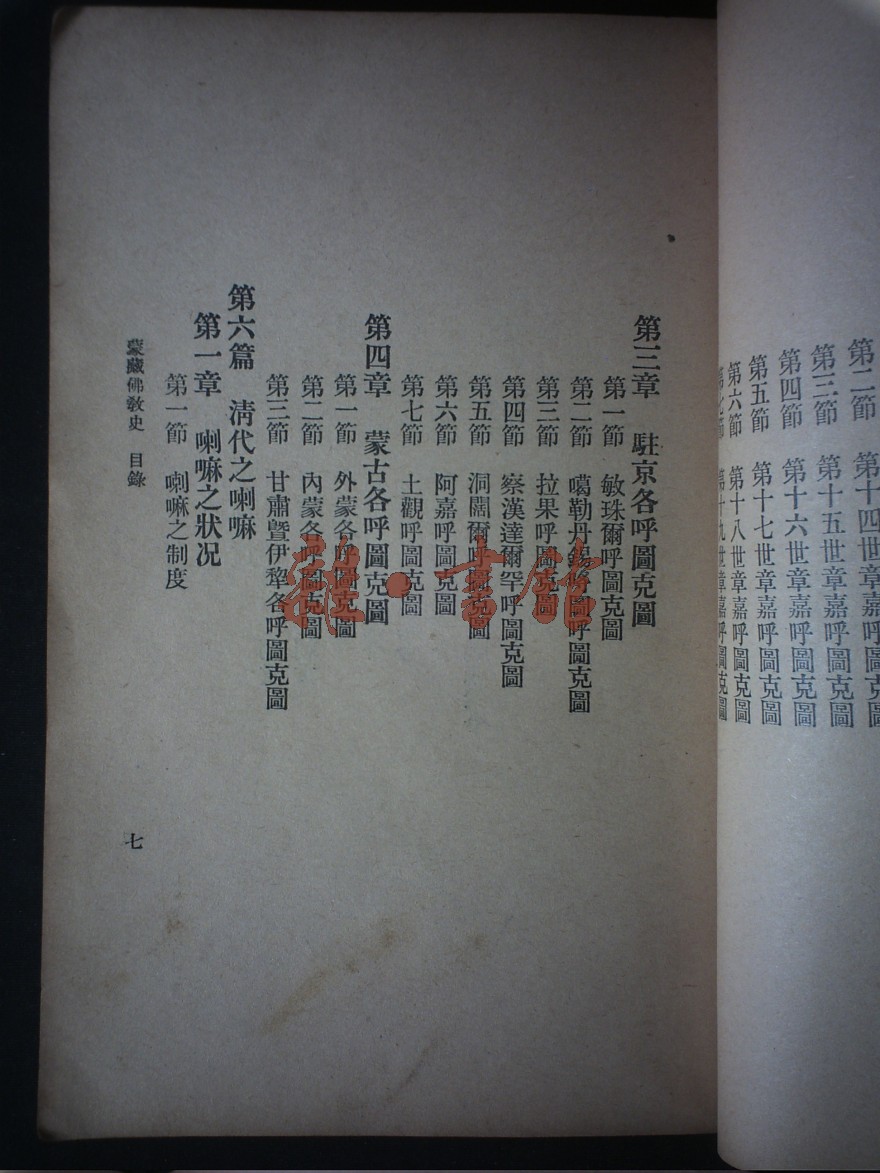 第二節 第十四世章嘉呼圖克圖
第三節 第十五世章嘉呼圖克圖
第四節 第十六世章嘉呼圖克圖
第五節 第十七世章嘉呼圖克圖
第六節 第十八世章嘉呼圖克圖
第七節 第十九世章嘉呼圖克圖
第三章 駐京各呼圖克圖
第一節 敏珠爾呼圖克圖
第二節 噶勒丹錫哷圖呼圖克圖
第三節 拉果呼圖克圖
第四節 察漢達爾罕呼圖克圖
第五節 洞闊爾呼圖克圖
第六節 阿嘉呼圖克圖
第七節 土觀呼圖克圖
第四章 蒙古各呼圖克圖
第一節 外蒙各呼圖克圖
第二節 內蒙各呼圖克圖
第三節 甘肅暨伊犂各呼圖克圖
第六篇 清代之喇嘛
第一章 喇嘛之狀況
第一節 喇嘛之制度
蒙藏佛敎史 目錄
七